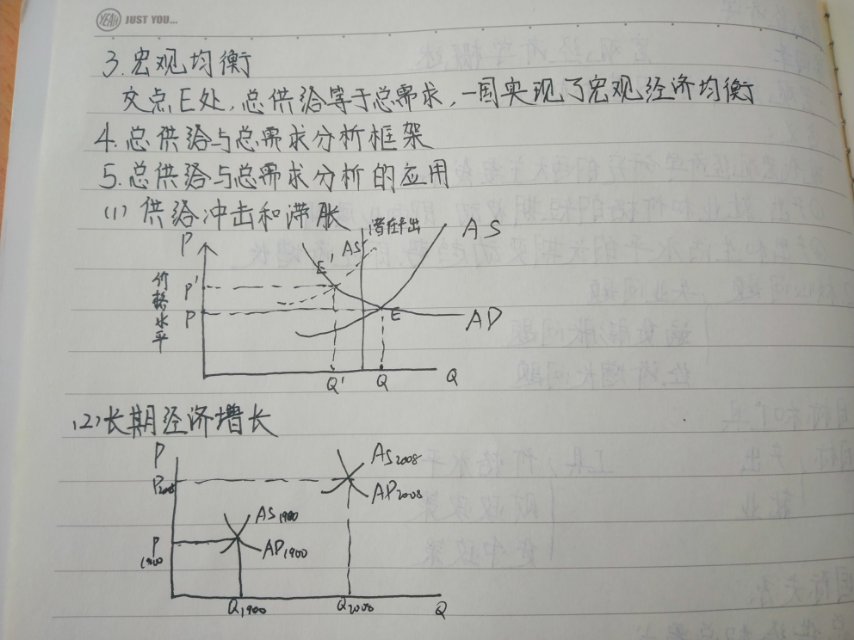 YEAH JUST YOU...
3.宏观均衡
交点E处,总供给等于总需求,一国实现了宏观经济均衡
4.总供给与总需求分析框架
5.总供给与总需求分析的应用
(1)供给冲击和滞胀
P AS' 潜在产出 AS
E'
价格水平 P'
P E AD
Q' Q Q
(2)长期经济增长
P AS2008
P2008 AD2008
AS1900
P1900 AD1900
Q1900 Q2008 Q